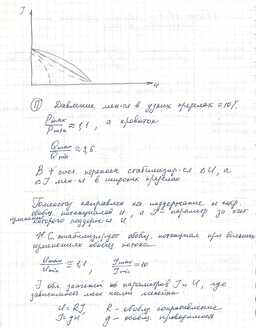 J
u
II Давление мен-ся в узких пределах ≈ 10%
Pmax/Pmin ≈ 1,1 , а кровоток
Qmax/Qmin ≈ 3,6.
В сист. переноса стабилизир-ся ΔU, а
ΔJ мен-ся в широких пределах
Гомеостаз направлен на поддержание и сохр.
обобщ. потенциалов U, а J - параметр за счет
которого поддерж-ся U
Ж.С. стабилизирует обобщ. потенциал при больших
изменениях обобщ. потока
Umax/Umin ≈ 1,1 , Jmax/Jmin ≈ 10
J обл. значений от параметров J и U, где
зависимость мен
U = RJ R - обобщ. сопротивление
J = gU g - обобщ. проводимость